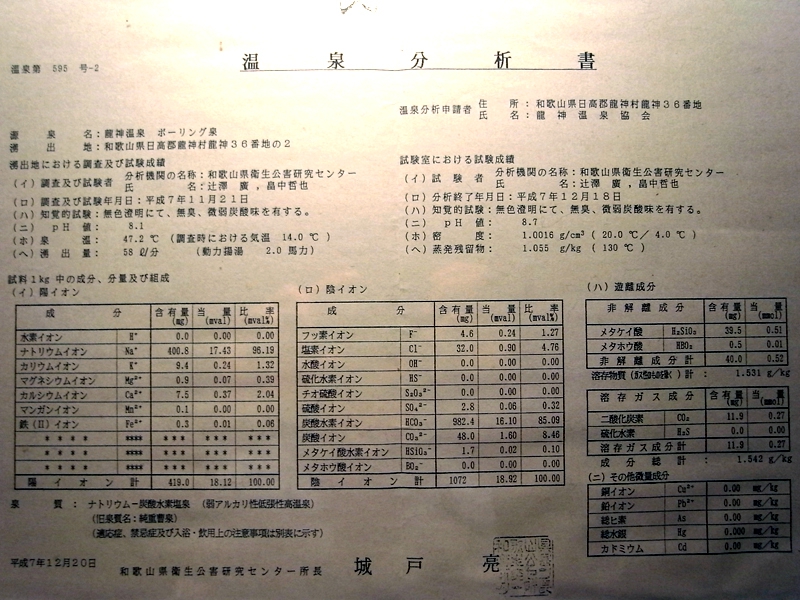 温泉分析書
温泉第 595 号-2
温泉分析申請者 住所:和歌山県日高郡龍神村龍神36番地
氏名:龍神温泉協会
源泉名:龍神温泉 ボーリング泉
湧出地:和歌山県日高郡龍神村龍神36番地の2
湧出地における調査及び試験成績
(イ)調査及び試験者 分析機関の名称:和歌山県衛生公害研究センター
氏名:辻澤 廣,畠中哲也
(ロ)調査及び試験年月日:平成7年11月21日
(ハ)知覚的試験:無色澄明にて、無臭、微弱炭酸味を有する。
(ニ) pH 値: 8.1
(ホ)泉温: 47.2 ℃ (調査時における気温 14.0 ℃)
(ヘ)湧出量: 58 ℓ/分 (動力揚湯 2.0 馬力)
試験室における試験成績
(イ)試験者 分析機関の名称:和歌山県衛生公害研究センター
氏名:辻澤 廣,畠中哲也
(ロ)分析終了年月日:平成7年12月18日
(ハ)知覚的試験:無色澄明にて、無臭、微弱炭酸味を有する。
(ニ) pH 値: 8.7
(ホ)密度: 1.0016 g/cm³ ( 20.0 ℃/ 4.0 ℃)
(ヘ)蒸発残留物: 1.055 g/kg ( 130 ℃)
試料1kg 中の成分、分量及び組成
(イ)陽イオン
成分 含有量(mg) 当量(mval) 比率(mval%)
水素イオン H⁺ 0.0 0.00 0.00
ナトリウムイオン Na⁺ 400.8 17.43 96.19
カリウムイオン K⁺ 9.4 0.24 1.32
マグネシウムイオン Mg²⁺ 0.9 0.07 0.39
カルシウムイオン Ca²⁺ 7.5 0.37 2.04
マンガンイオン Mn²⁺ 0.1 0.00 0.00
鉄(Ⅱ)イオン Fe²⁺ 0.3 0.01 0.06
**** **** *** *** ***
**** **** *** *** ***
**** **** *** *** ***
陽イオン計 419.0 18.12 100.00
(ロ)陰イオン
成分 含有量(mg) 当量(mval) 比率(mval%)
フッ素イオン F⁻ 4.6 0.24 1.27
塩素イオン Cl⁻ 32.0 0.90 4.76
水酸イオン OH⁻ 0.0 0.00 0.00
硫化水素イオン HS⁻ 0.0 0.00 0.00
チオ硫酸イオン S₂O₃²⁻ 0.0 0.00 0.00
硫酸イオン SO₄²⁻ 2.8 0.06 0.32
炭酸水素イオン HCO₃⁻ 982.4 16.10 85.09
炭酸イオン CO₃²⁻ 48.0 1.60 8.46
メタケイ酸水素イオン HSiO₃⁻ 1.7 0.02 0.10
メタホウ酸イオン BO₂⁻ 0.0 0.00 0.00
陰イオン計 1072 18.92 100.00
(ハ)遊離成分
非解離成分 含有量(mg) 当量(mmol)
メタケイ酸 H₂SiO₃ 39.5 0.51
メタホウ酸 HBO₂ 0.5 0.01
非解離成分計 40.0 0.52
溶存物質(ガス性のものを除く)計: 1.531 g/kg
溶存ガス成分 含有量(mg) 当量(mmol)
二酸化炭素 CO₂ 11.9 0.27
硫化水素 H₂S 0.0 0.00
溶存ガス成分計 11.9 0.27
成分総計: 1.542 g/kg
(ニ)その他微量成分
銅イオン Cu²⁺ 0.00 mg/kg
鉛イオン Pb²⁺ 0.00 mg/kg
総ヒ素 As 0.00 mg/kg
総水銀 Hg 0.000 mg/kg
カドミウム Cd 0.00 mg/kg
泉質: ナトリウム-炭酸水素塩泉 (弱アルカリ性低張性高温泉)
(旧泉質名:純重曹泉)
(適応症、禁忌症及び入浴・飲用上の注意事項は別表に示す)
平成7年12月20日
和歌山県衛生公害研究センター所長 城戸 亮